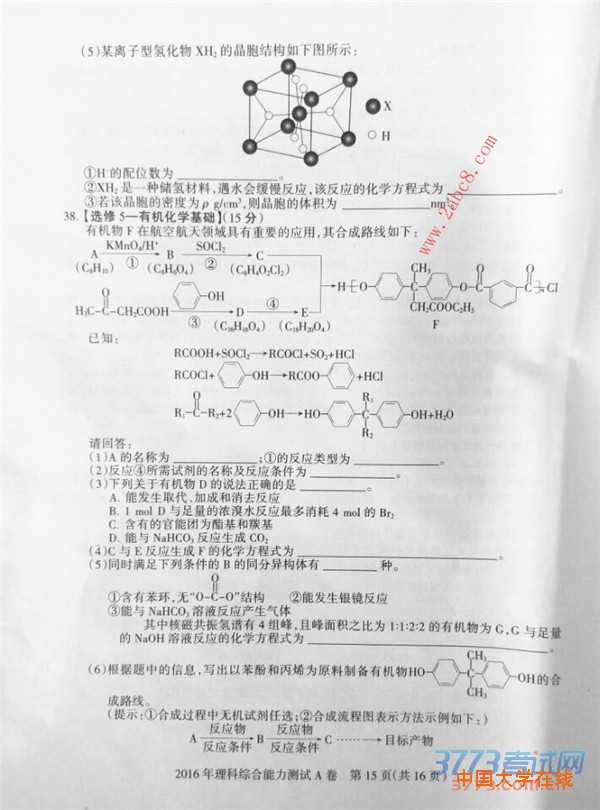 (5)某离子型氢化物 XH₂ 的晶胞结构如下图所示:
X
H
①H⁻的配位数为____________。
②XH₂ 是一种储氢材料,遇水会缓慢反应,该反应的化学方程式为____________。
③若该晶胞的密度为ρ g/cm³,则晶胞的体积为____________nm³
www.2abc8.com
38.【选修 5—有机化学基础】(15 分)
有机物 F 在航空航天领域具有重要的应用,其合成路线如下:
A KMnO₄/H⁺ ① B SOCl₂ ② C
(C₈H₁₀) (C₈H₆O₄) (C₈H₄O₂Cl₂)
H₃C-C-CH₂COOH O OH ③ D ④ E
(C₁₆H₁₆O₄) (C₁₈H₂₀O₄)
H O CH₃ C CH₂COOC₂H₅ OC O C O n Cl
F
已知:
RCOOH+SOCl₂→RCOCl+SO₂+HCl
RCOCl+ OH→RCOO +HCl
R₁-C-R₂+2 O OH→HO R₁ C R₂ OH+H₂O
请回答:
(1)A 的名称为____________;①的反应类型为____________。
(2)反应④所需试剂的名称及反应条件为____________。
(3)下列关于有机物 D 的说法正确的是____________。
A. 能发生取代、加成和消去反应
B. 1 mol D 与足量的浓溴水反应最多消耗 4 mol 的 Br₂
C. 含有的官能团为酯基和羧基
D. 能与 NaHCO₃ 反应生成 CO₂
(4)C 与 E 反应生成 F 的化学方程式为____________。
(5)同时满足下列条件的 B 的同分异构体有________种。
①含有苯环,无"O-C-O"结构 O ②能发生银镜反应
③能与 NaHCO₃ 溶液反应产生气体
其中核磁共振氢谱有 4 组峰,且峰面积之比为 1:1:2:2 的有机物为 G,G 与足量
的 NaOH 溶液反应的化学方程式为____________。
(6)根据题中的信息,写出以苯酚和丙烯为原料制备有机物HO CH₃ C CH₃ OH的合
成路线。
(提示:①合成过程中无机试剂任选;②合成流程图表示方法示例如下:)
A 反应物 反应条件 B 反应物 反应条件 C ……→目标产物
2016 年理科综合能力测试 A 卷 第 15 页(共 16 页)
3773考试网
中国大学在线